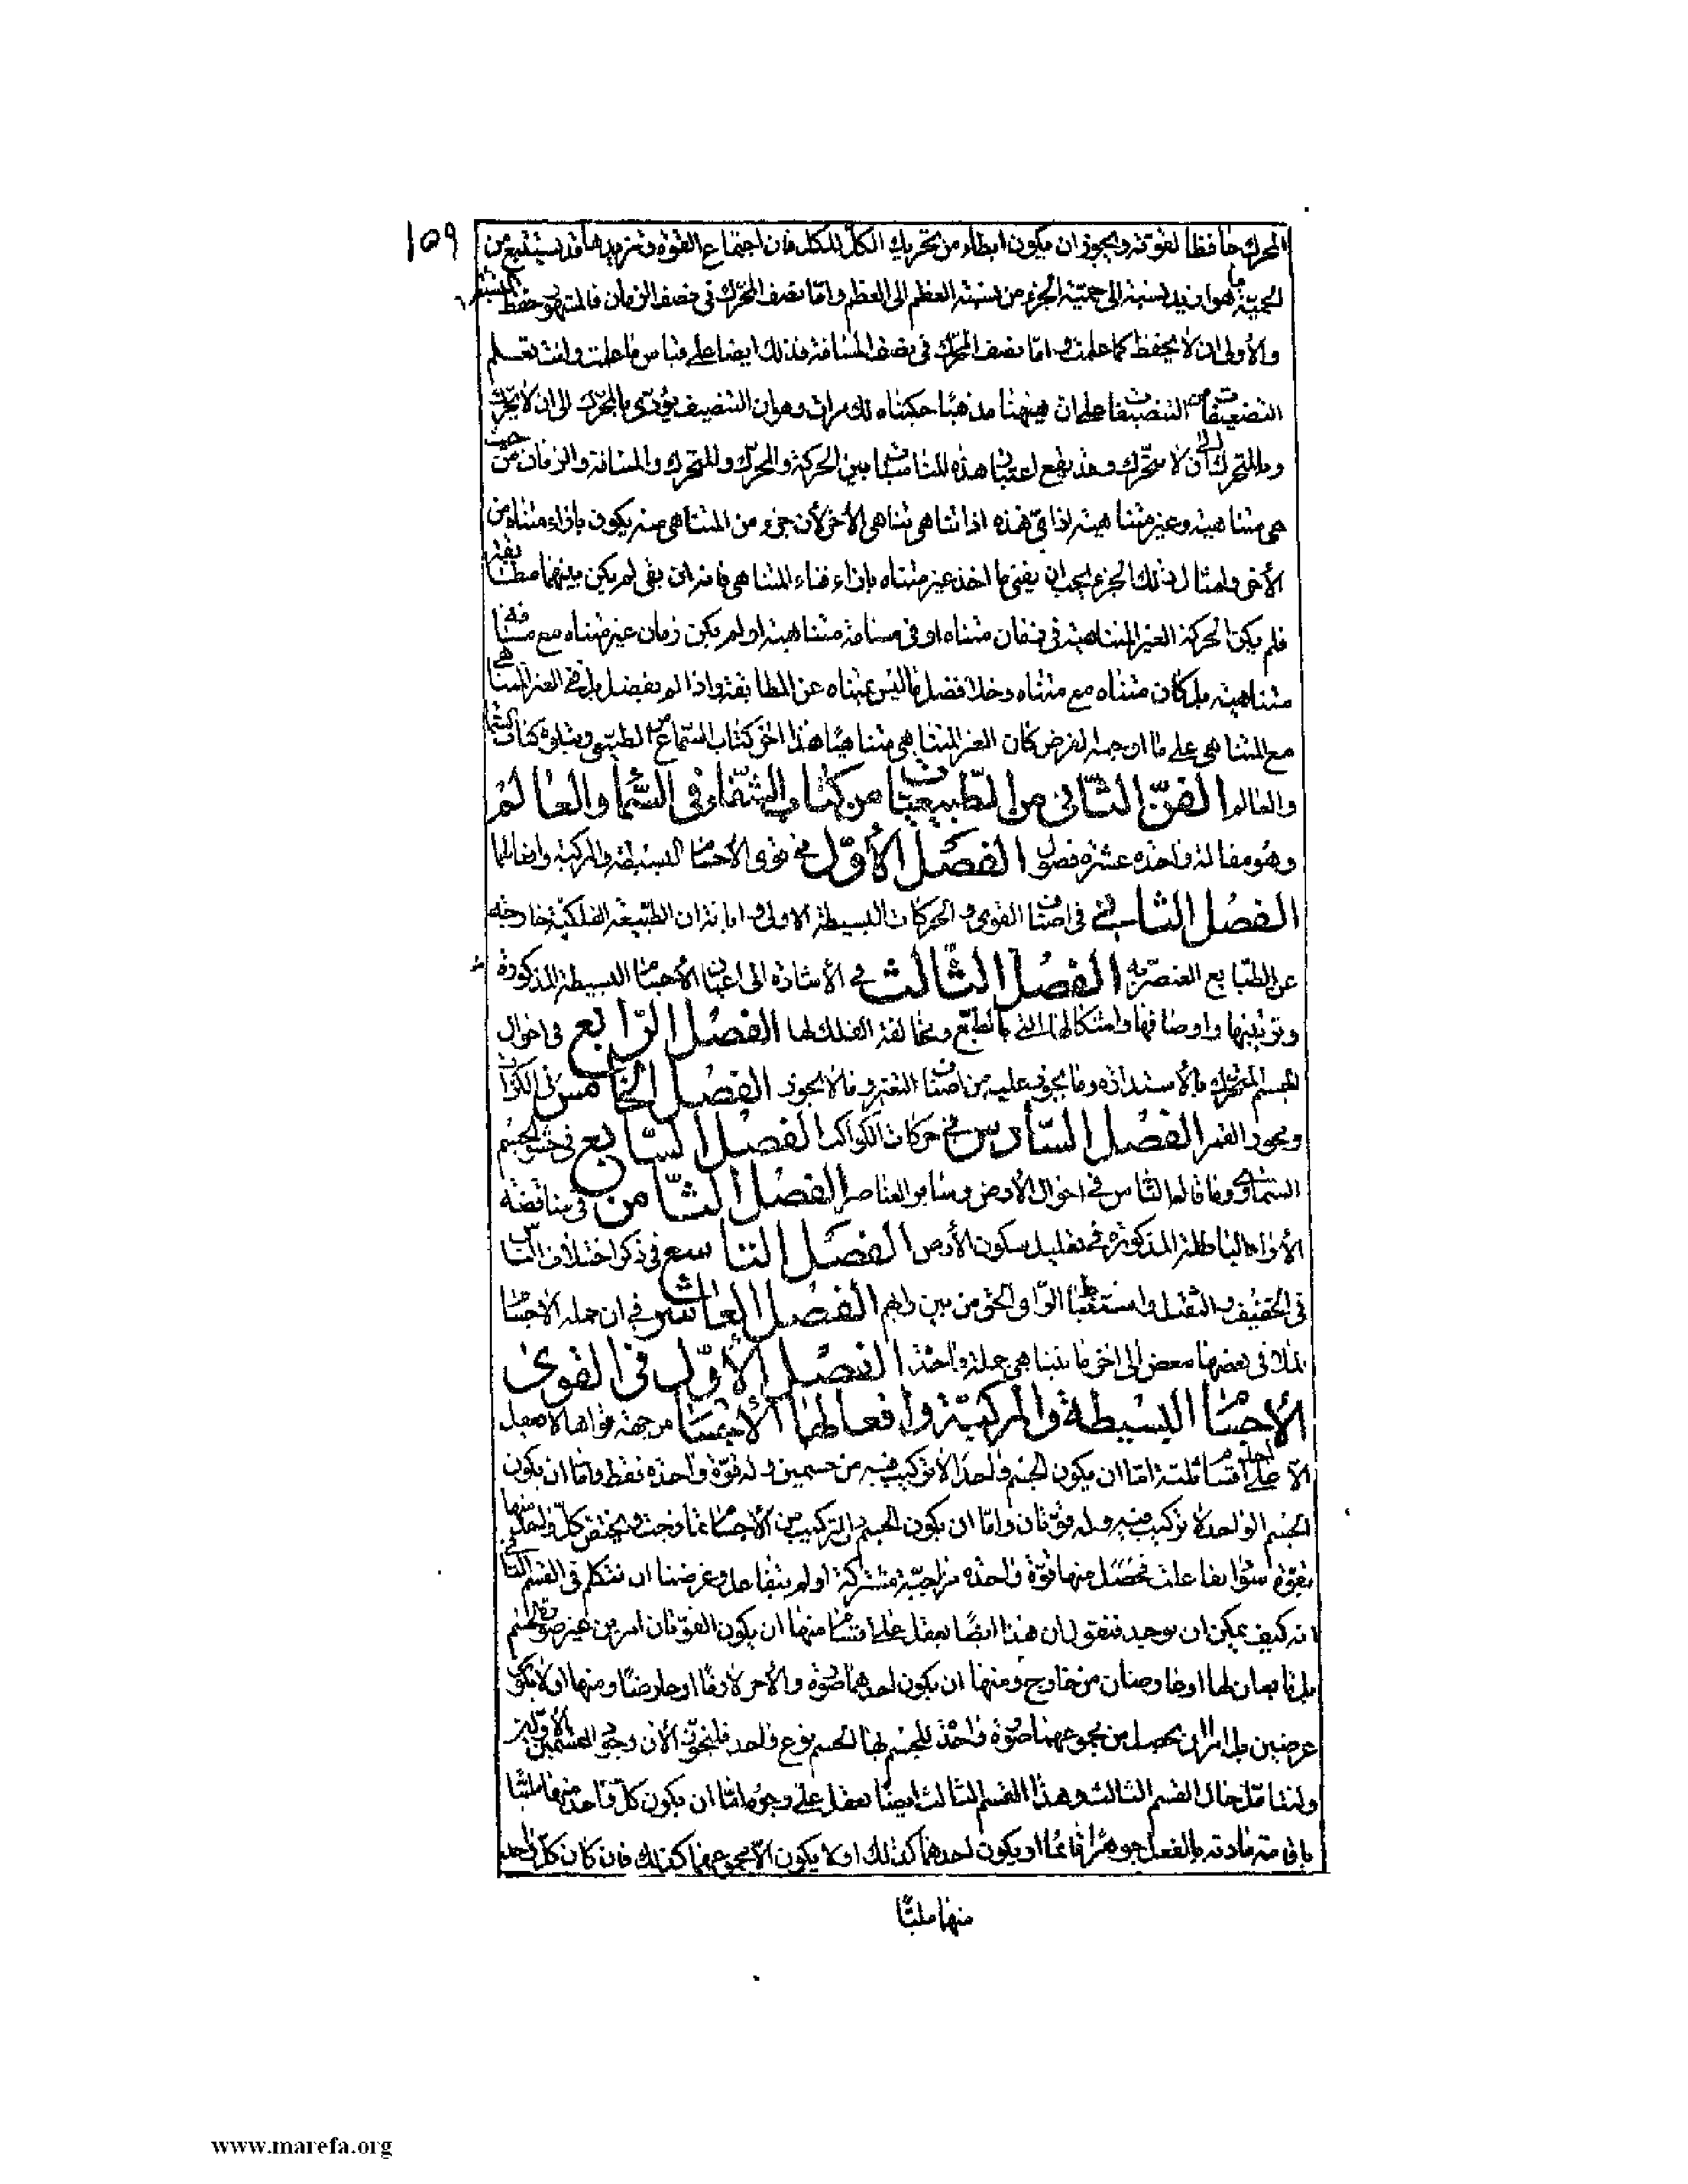 ١٥٩
المحرك حافظا لقوته ويجوز ان يكون ابطاء من تحريك الكل للكل فان اجتماع القوة وتزيدها قد يستتبع من
الحمية ما هو ازيد نسبة الى حمية الجزء من نسبة العظم الى العظم واما نصف المحرك في نصف الزمان فالمشهور حفظ النسبة
والأولى ان لا يحفظ كما علمت واما نصف المحرك في نصف المسافة فذلك ايضا على قياس ما علمت وانت تعلم
التضعيفات من التنصيفات على ان ههنا مذهبا حكيناه لك مرات وهو ان التنصيف يؤدى بالمحرك الى ان لا يحرك
وبالمتحرك الى ان لا يتحرك وقد يقع اعتبار هذه المناسبات بين الحركة والمحرك والمتحرك والمسافة والزمان من حيث
هى متناهية وغير متناهية اذ اى هذه اذا تناهى تناهى الأخر لأن جزء من المتناهى منه يكون بازاء متناه من
الأخر وامثال ذلك الجزء يجب ان يفنى ما اخذ غير متناه بازاء فناء المتناهى فانه ان بقى لم يكن بينهما مطابقة
فلم يكن الحركة الغير المتناهية في زمان متناه او في مسافة متناهية او لم يكن زمان غير متناه مع مسافة
متناهية بل كان متناه مع متناه وخلا فضل ما ليس بمتناه عن المطابقة واذا لم يفضل بل في الغير المتناهى
مع المتناهى على ما اوجبه الفرض كان الغير المتناهى متناهيا هذا اخر كتاب السماع الطبيعى ويتلوه كتاب السماء
والعالم الفن الثانى من الطبيعيات من كتاب الشفاء في السماء والعالم
وهو مقالة واحدة عشرة فصول الفصل الأول في قوى الأجسام البسيطة والمركبة وافعالها
الفصل الثانى في اصناف القوى والحركات البسيطة الاولى وابانة ان الطبيعة الفلكية خارجة
عن الطبايع العنصرية الفصل الثالث في الأشارة الى اعيان الأجسام البسيطة المذكورة
وترتيبها واوصافها واشكالها التي بالطبع ومخالفة الفلك لها الفصل الرابع في احوال
الجسم المتحرك بالأستدارة وما يجوز عليه من اصناف التغير وما لا يجوز الفصل الخامس في الكواكب
ومحو القمر الفصل السادس في حركات الكواكب الفصل السابع في حشو الجسم
السماوى وما قاله الناس في احوال الأرض وسائر العناصر الفصل الثامن في مناقضة
الأراء الباطلة المذكورة في تعليل سكون الأرض الفصل التاسع في ذكر اختلاف الناس
في الخفيف والثقيل واستنباط الرأى الحق من بين رائهم الفصل العاشر في ان جملة الاجسام
الملاقى بعضها لبعض الى اخر ما يتناهى جملة واحدة الفصل الأول في القوى
الأجسام البسيطة والمركبة وافعالها الأجسام من جهة قواها لا يعقل
الا على احد اقسام ثلثة اما ان يكون الجسم واحدا لا تركيب فيه من جسمين وله قوة واحدة فقط واما ان يكون
الجسم الواحد لا تركيب فيه وله قوتان واما ان يكون الجسم ذا تركيب من الأجسام تمازجت ويختص كل واحد منها
بقوة سواء تفاعلت فحصل منها قوة واحدة مزاجية مشتركة او لم يتفاعل وغرضنا ان نتكلم في القسم الثانى
انه كيف يمكن ان يوجد فنقول ان هذا ايضا يعقل على اقسام منها ان يكون القوتان امرين غير صورة الجسم
بل تابعان لها او عارضان من خارج ومنها ان يكون احدهما صورة والأخر لازما او عارضا ومنها ان لا يكونا
عرضين بل امران يحصل من مجموعهما صورة واحدة للجسم لها الجسم نوع واحد فلنجوز الأن وجود القسمين الأولين
ولنتأمل حال القسم الثالث وهذا القسم الثالث ايضا يعقل على وجوه اما ان يكون كل واحد منهما مليا
باقامة مادته بالفعل جوهرا قائما او يكون احدهما كذلك او لا يكون الا مجموعهما كذلك فان كان كل واحد
منهما مليا
www.marefa.org